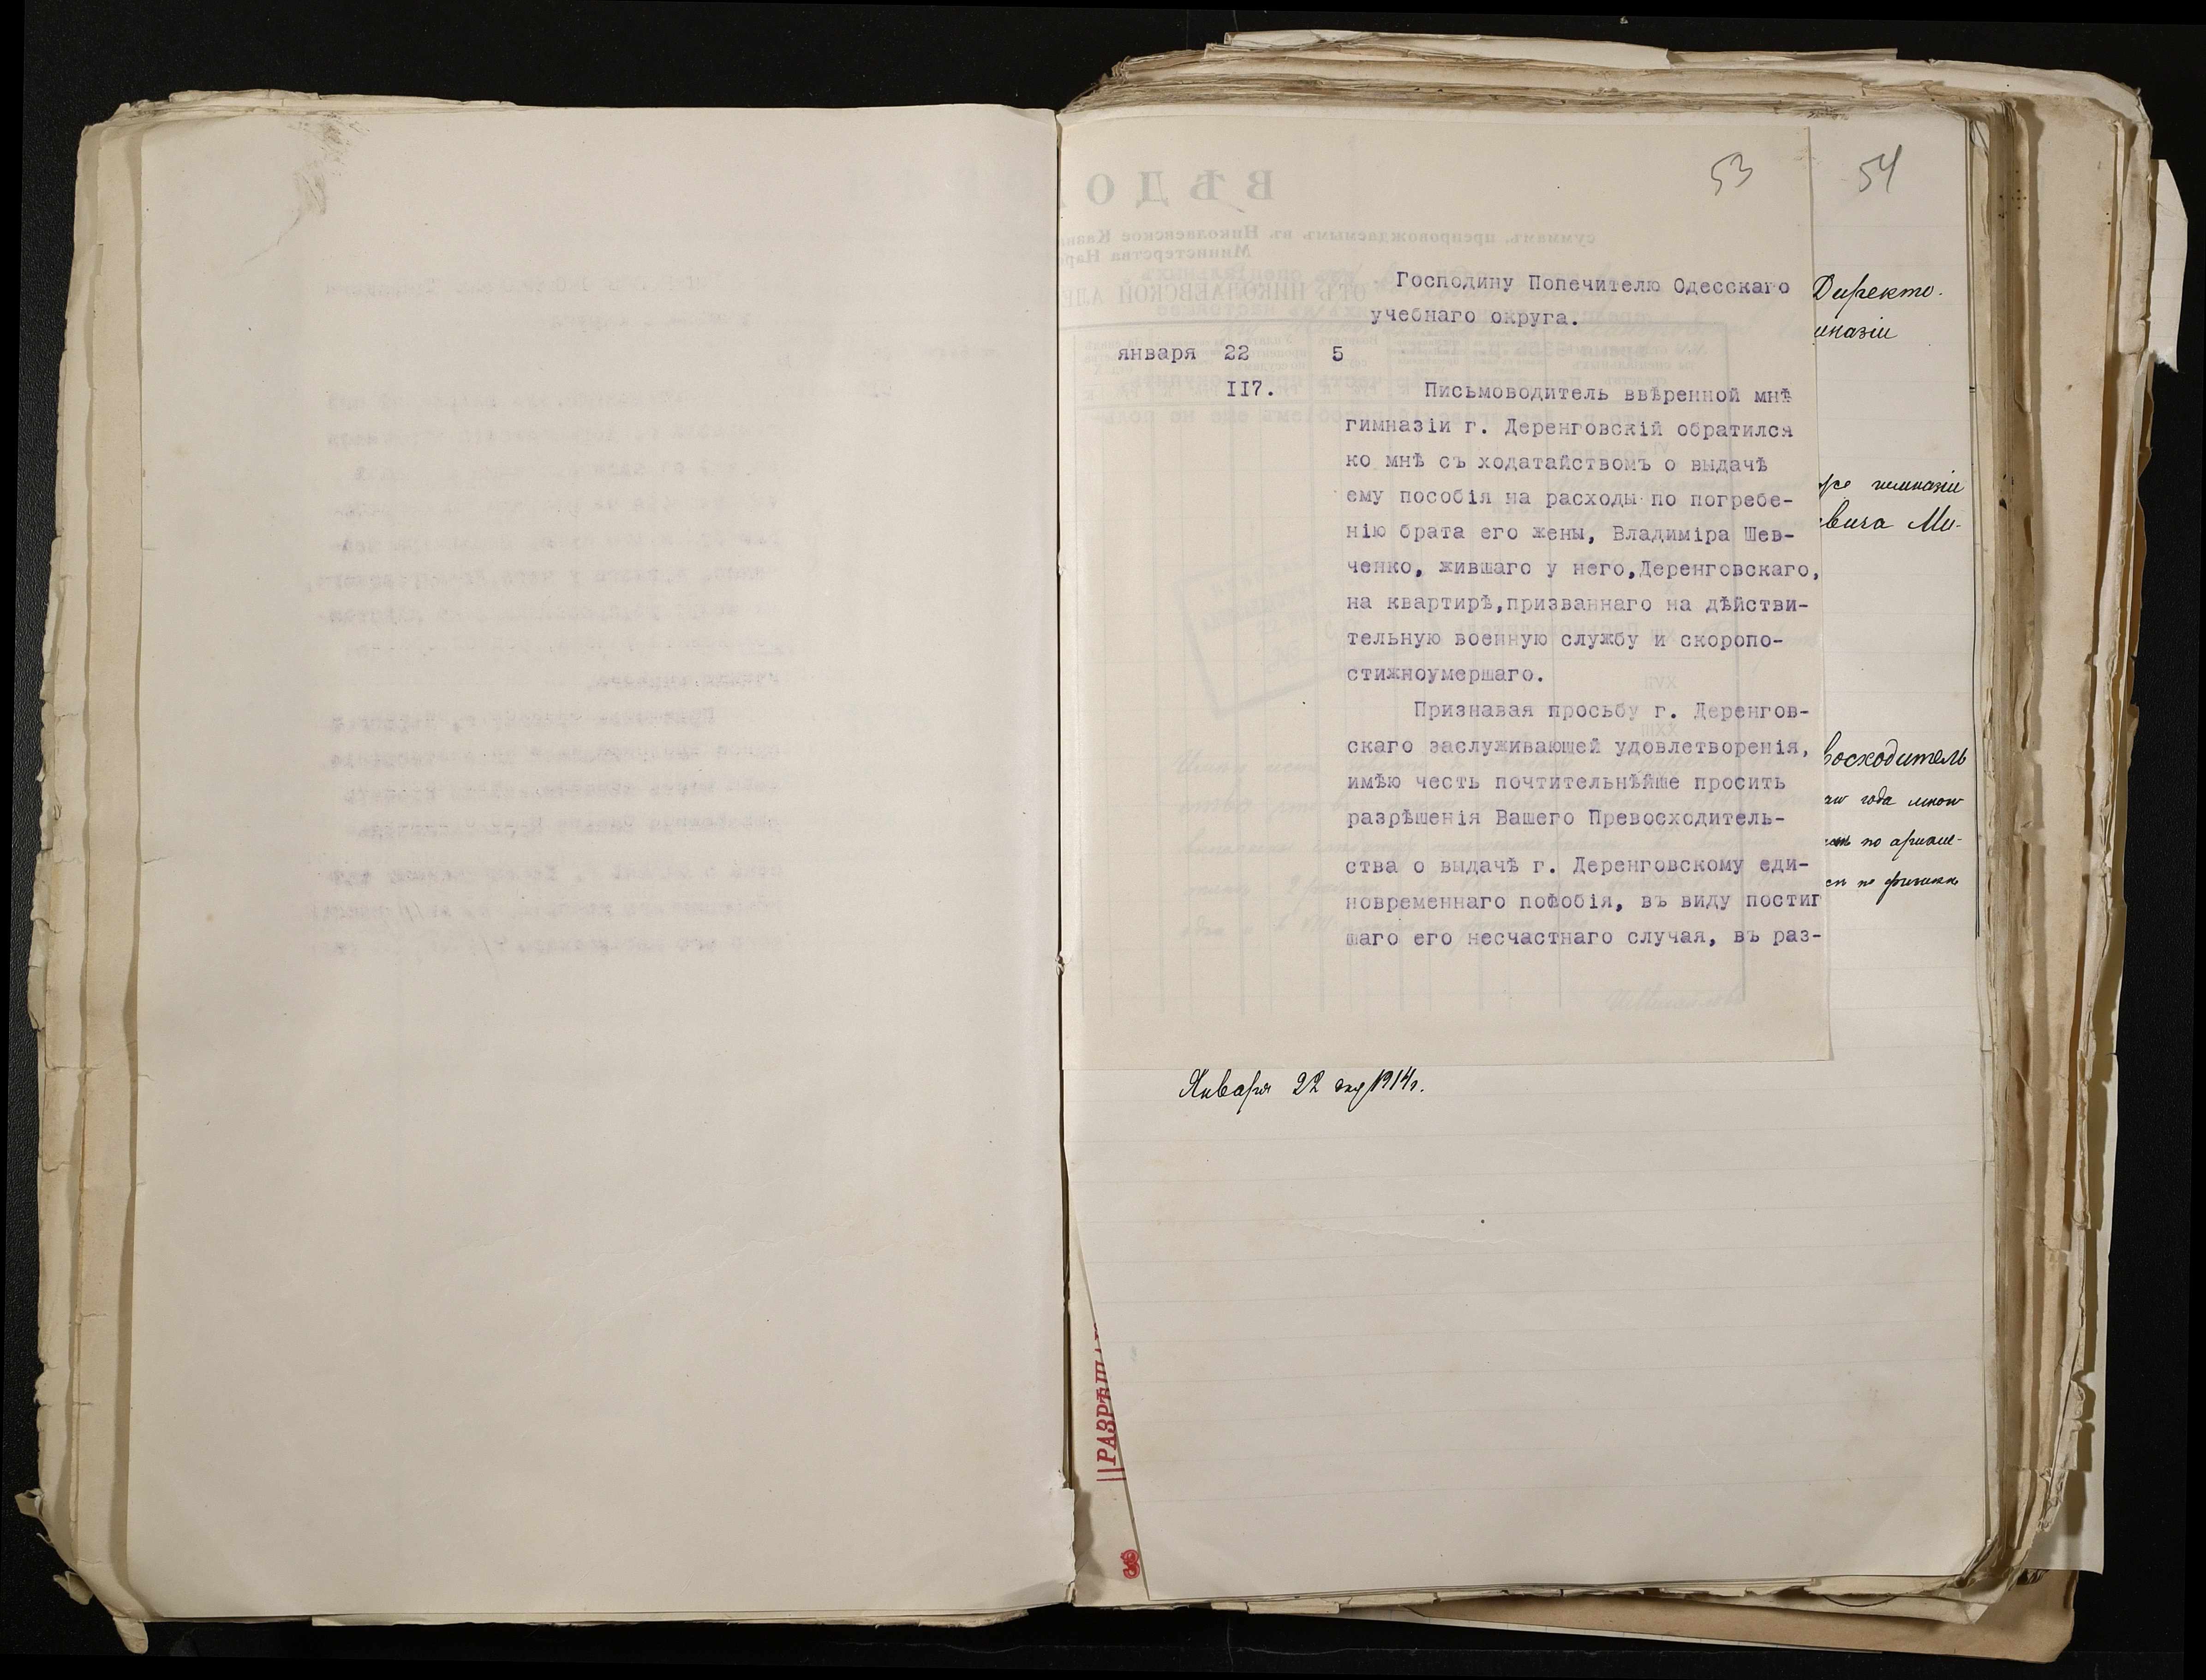 53
54
Господину Попечителю Одесскаго
учебнаго округа.
января 22 5
II7.
Письмоводитель ввѣренной мнѣ
гимназіи г. Деренговскій обратился
ко мнѣ съ ходатайствомъ о выдачѣ
ему пособія на расходы по погребе-
нію брата его жены, Владиміра Шев-
ченко, жившаго у него,Деренговскаго,
на квартирѣ,призваннаго на дѣйстви-
тельную военную службу и скоропо-
стижноумершаго.
Признавая просьбу г. Деренгов-
скаго заслуживающей удовлетворенія,
имѣю честь почтительнѣйше просить
разрѣшенія Вашего Превосходитель-
ства о выдачѣ г. Деренговскому еди-
новременнаго пособія, въ виду постиг
шаго его несчастнаго случая, въ раз-
Директо.
мназіи
гимназіи
вича Ми-
восходитель
года
по
по физикѣ
Января 22 дня 1914г.
РАЗРѢШ